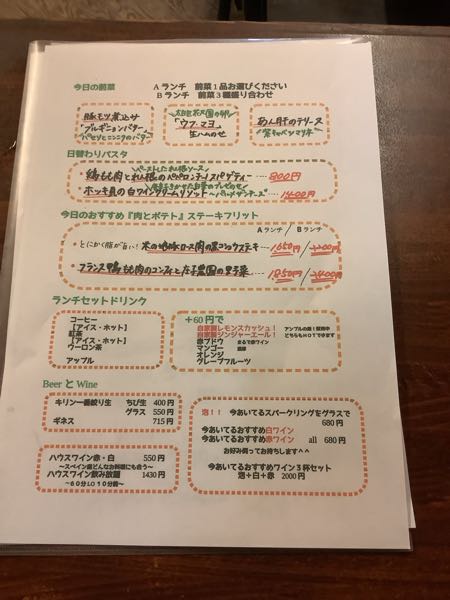 今日の前菜
Aランチ 前菜1品お選びください
Bランチ 前菜3種盛り合わせ
豚モツ煮込み
"ブルギニョンバター"
パセリとニンニクのバター
「ウフ マヨ」
生ハムのせ
あん肝のテリーヌ
日替わりパスタ
ペーストした
ソース
・鶏もも肉と のペペロンチーノスパゲティー ・・・・ 800円
のせ
・ホッキ貝の白ワインクリームリゾット ・・・ 1400円
今日のおすすめ『肉とポテト』ステーキフリット
Aランチ / Bランチ
・とにかく脂が旨い! 豚ロース肉の ステーキ ・・・ 1650円/2200円
・フランス鴨もも肉のコンフィと庄子農園の ・・・ 1850円/2400円
ランチセットドリンク
コーヒー
【アイス・ホット】
紅茶
【アイス・ホット】
ウーロン茶
アップル
+60円で
自家製レモンスカッシュ!
自家製ジンジャーエール!
どちらもHOTできます
赤ブドウ まるで赤ワイン
マンゴー 濃厚
オレンジ
グレープフルーツ
Beer と Wine
キリン一番絞り生 ちび生 400円
グラス 550円
ギネス 715円
ハウスワイン赤・白 550円
~スペイン産どんなお料理にも合う~
ハウスワイン飲み放題 1430円
~60分LO10分前~
泡!! 今あいてるスパークリングをグラスで
680円
今あいてるおすすめ白ワイン
今あいてるおすすめ赤ワイン all 680円
お好み伺ってお持ちします^^
今あいてるおすすめワイン3杯セット
泡+白+赤 2000円